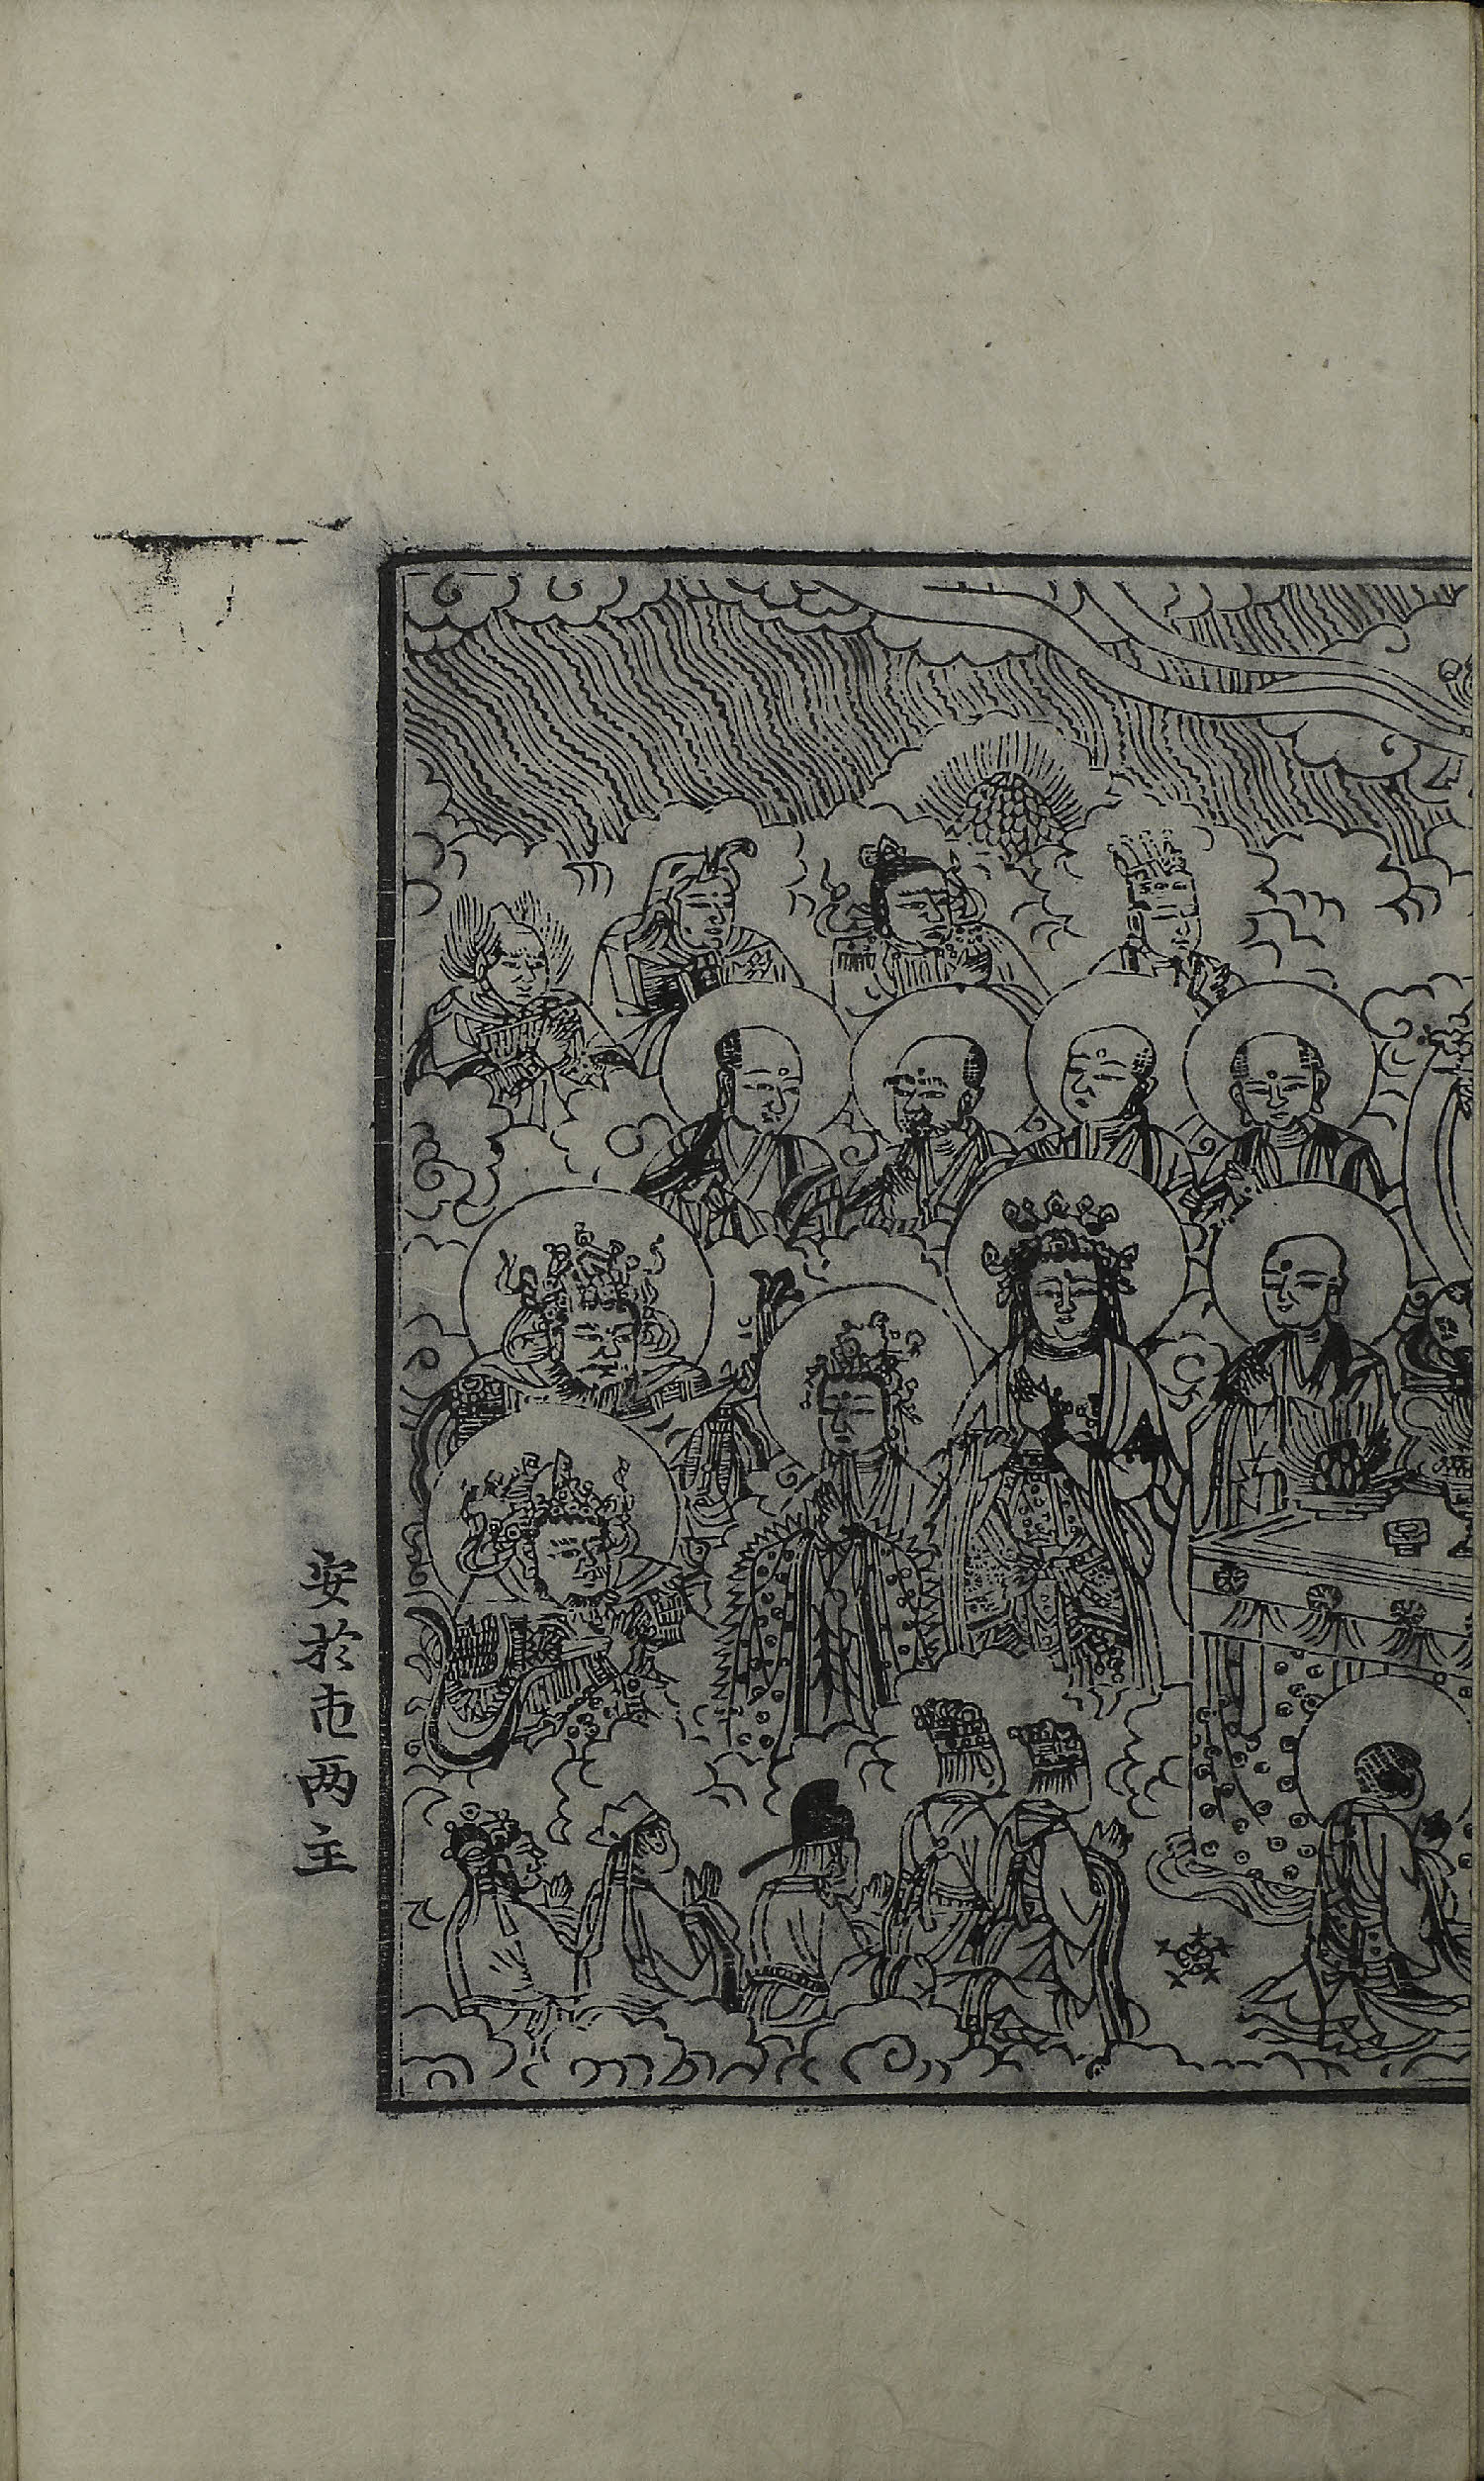 安於屯两主